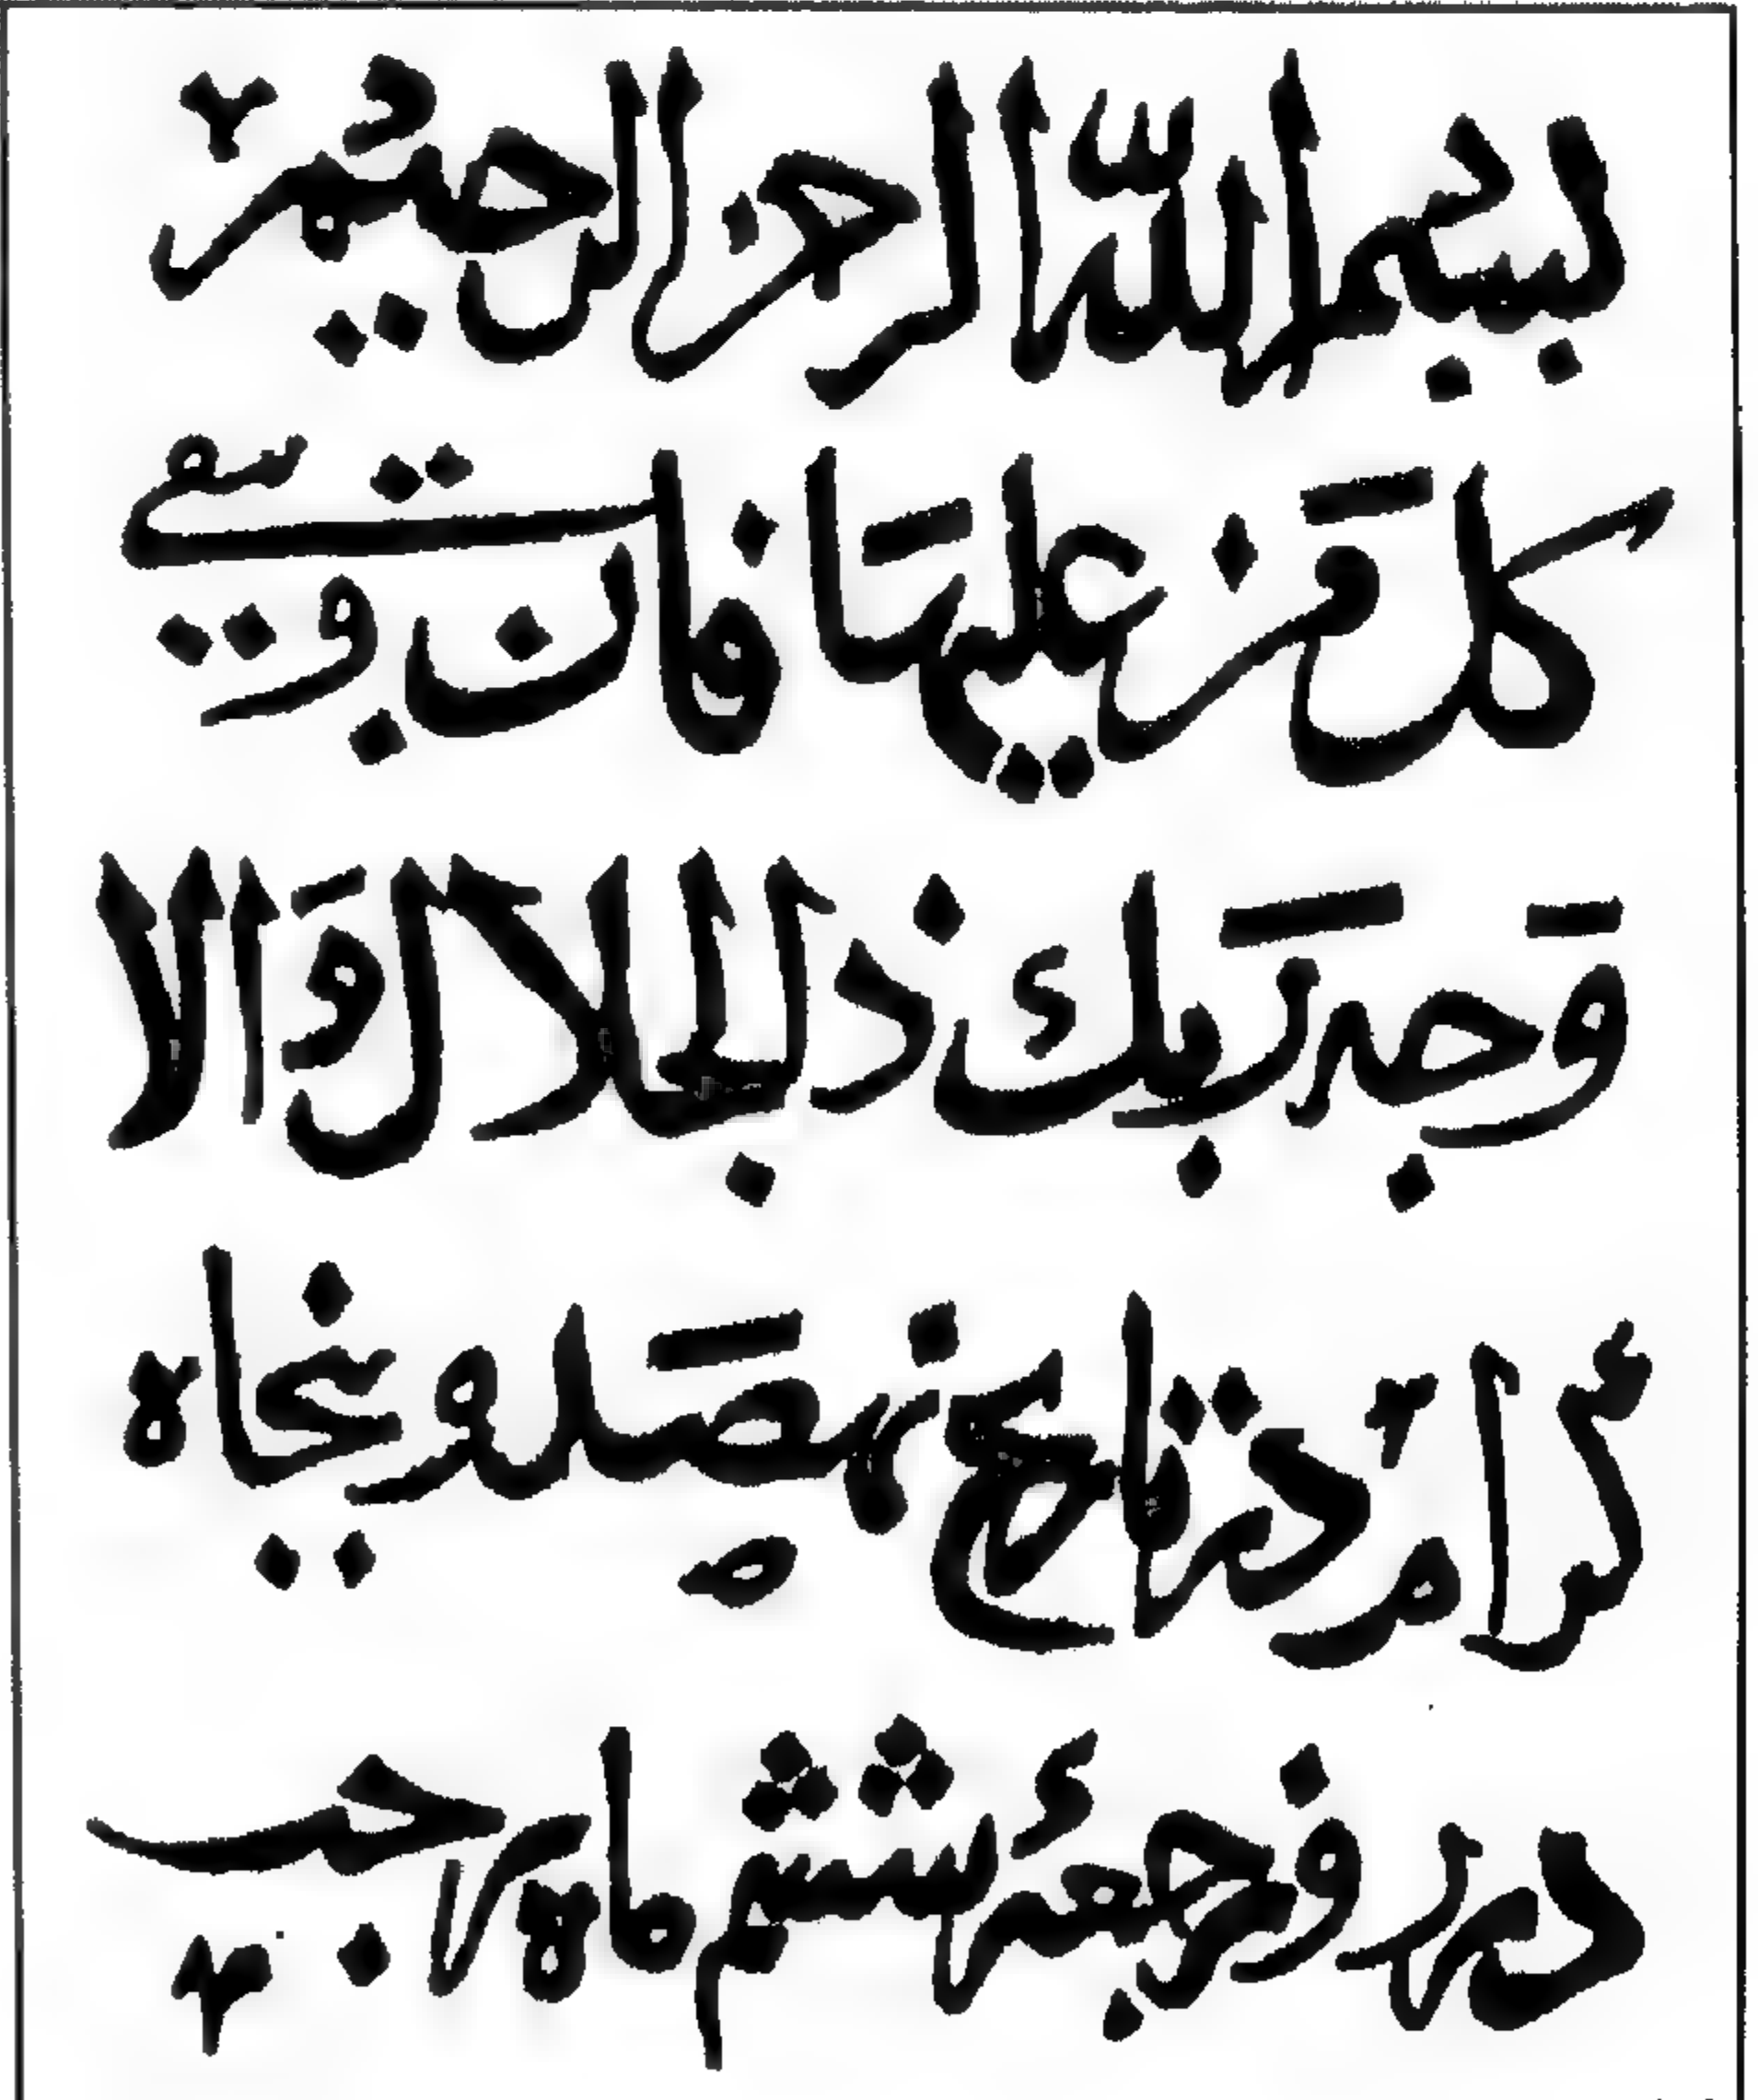 بسم الله الرحمن الرحیم
کل من علیها فان ویبقی
وجه ربک ذالجلال والا
کرام در تاریخ نهصد و پنجاه
در روز جمعه ششم ماه رجب